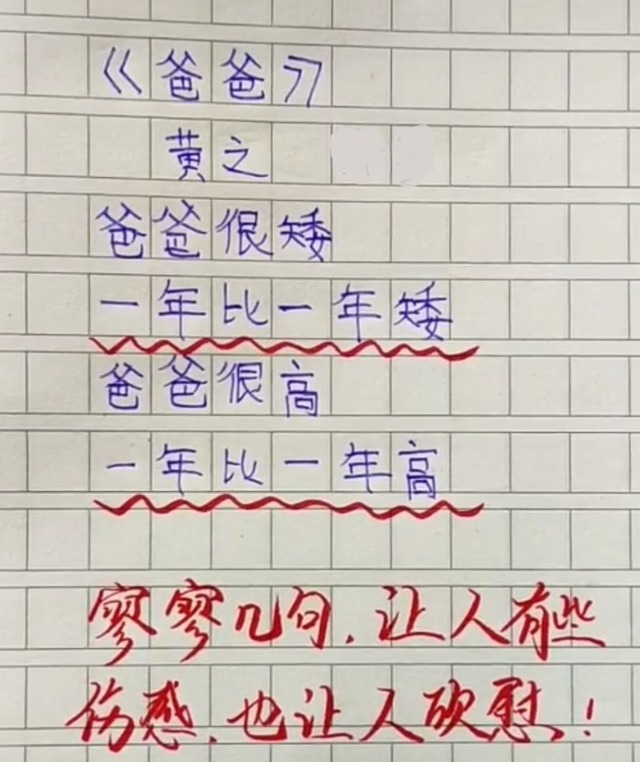 《爸爸》
黄之
爸爸很矮
一年比一年矮
爸爸很高
一年比一年高
寥寥几句,让人有些
伤感,也让人欣慰!